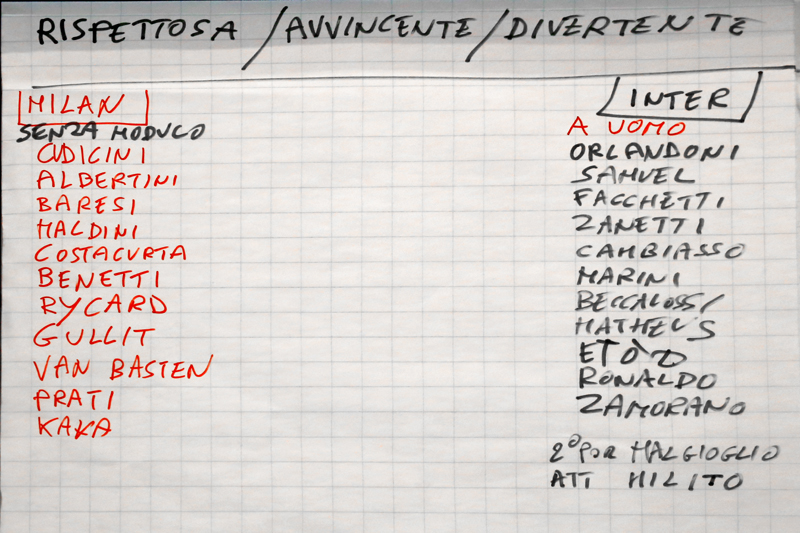 RISPETTOSA / AVVINCENTE / DIVERTENTE
MILAN
SENZA MODULO
CUDICINI
ALBERTINI
BARESI
MALDINI
COSTACURTA
BENETTI
RYCARD
GULLIT
VAN BASTEN
PRATI
KAKA
INTER
A UOMO
ORLANDONI
SAMUEL
FACCHETTI
ZANETTI
CAMBIASSO
MARINI
BECCALOSSI
MATHEUS
ETÒO
RONALDO
ZAMORANO
2° POR MALGIOGLIO
ATT MILITO